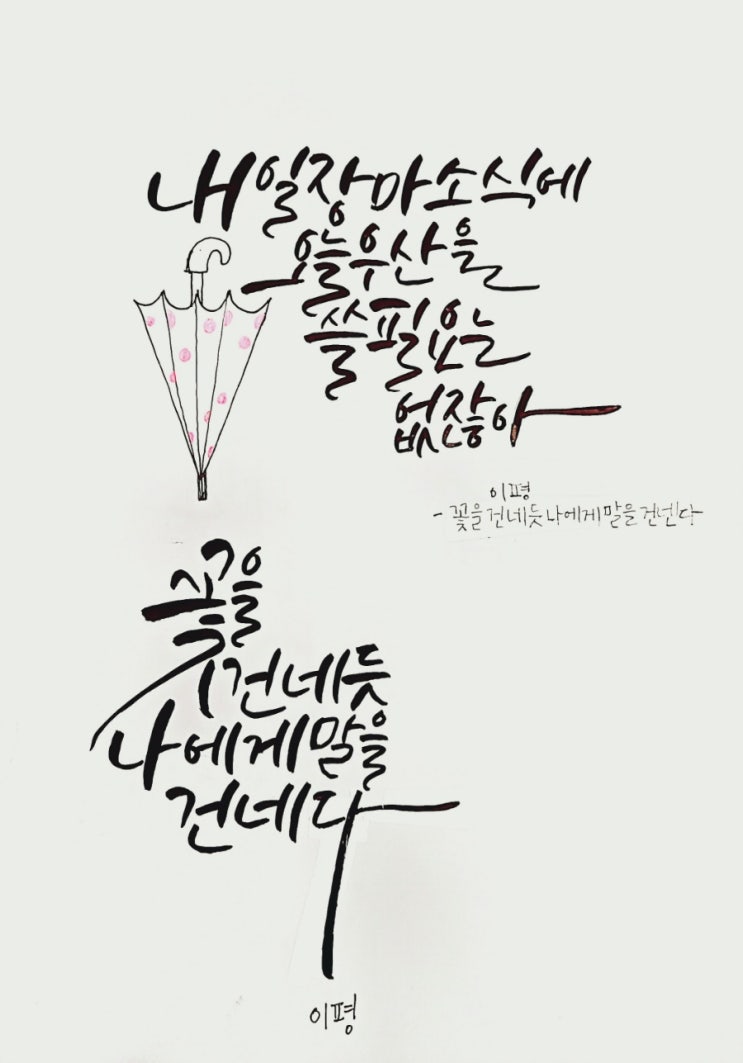 내일 장마 소식에
오늘 우산을
쓸 필요는
없잖아
이평
- 꽃을 건네듯 나에게 말을 건넨다
꽃을
건네듯
나에게 말을
건네다
이평